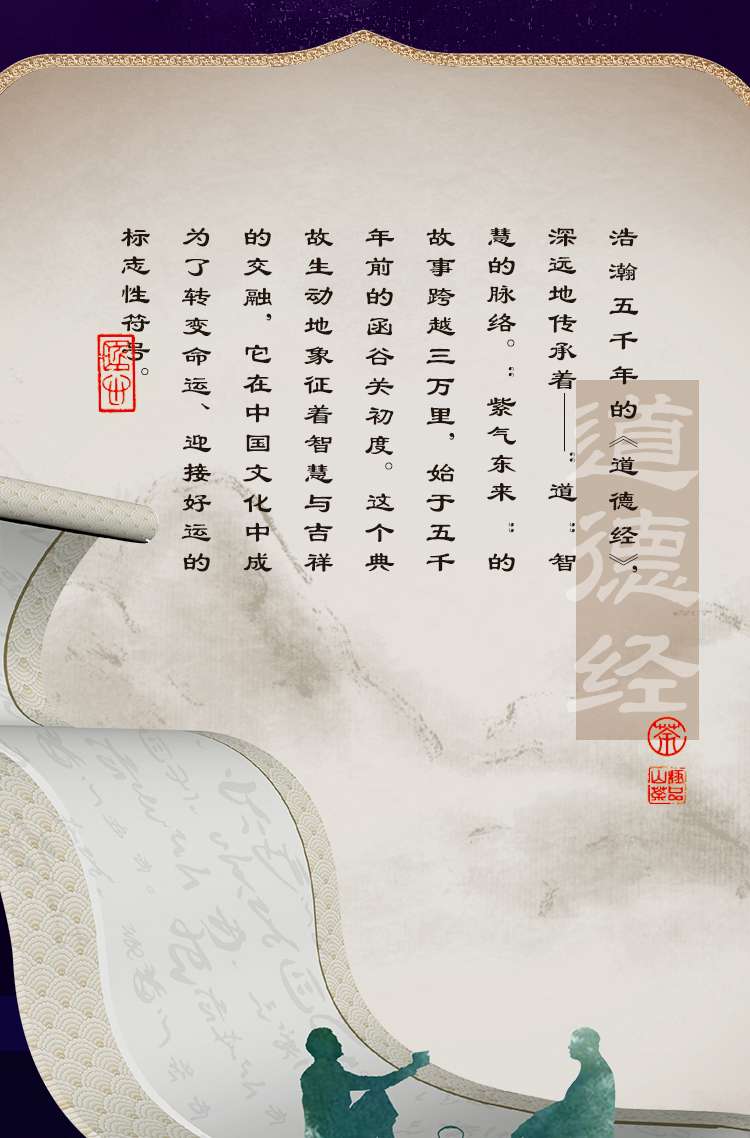 浩瀚五千年的《道德经》，
深远地传承着——“道”智
慧的脉络。“紫气东来”的
故事跨越三万里，始于五千
年前的函谷关初度。这个典
故生动地象征着智慧与吉祥
的交融，它在中国文化中成
为了转变命运、迎接好运的
标志性符号。
道德经
茶
極品
山茶